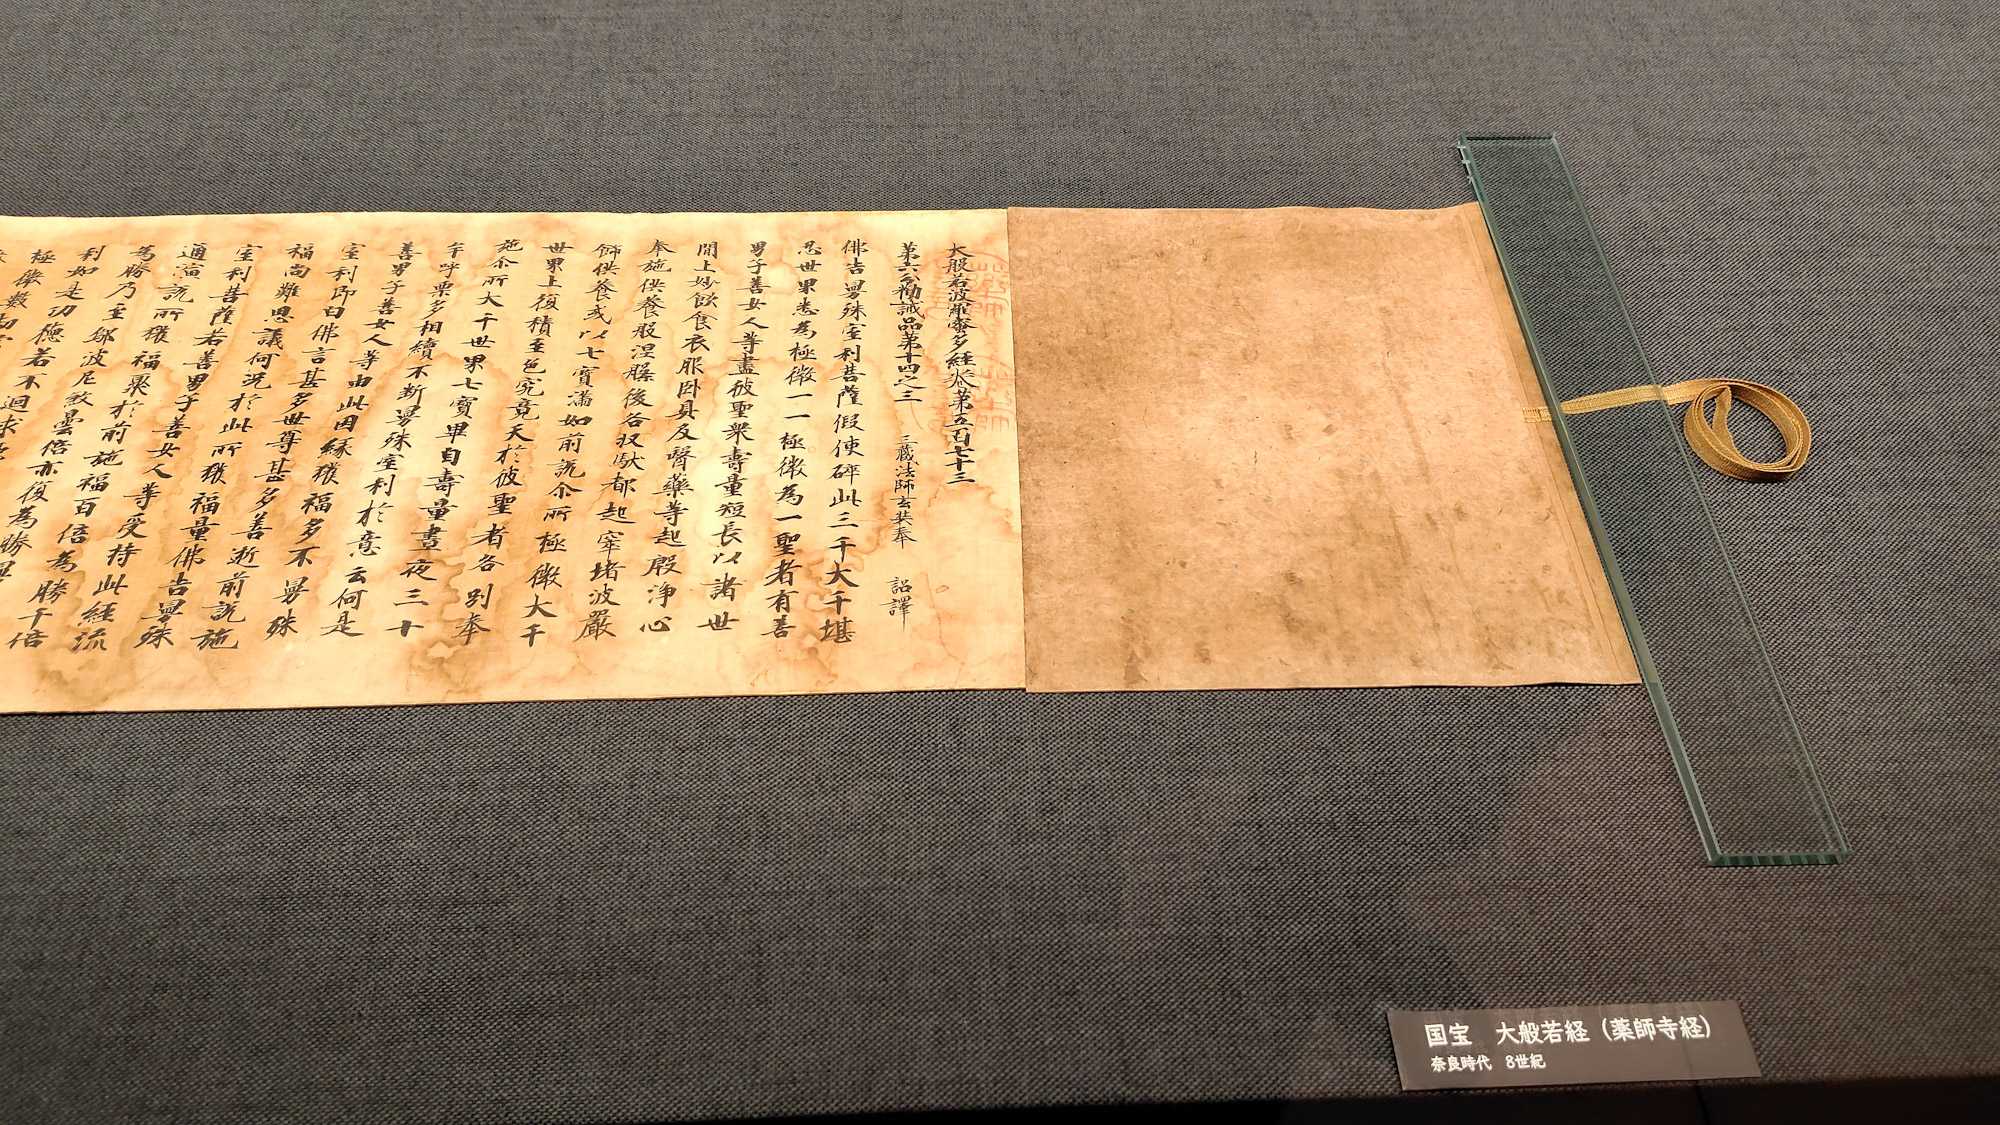 大般若波羅蜜多經卷第五百七十三
第六分勸誡品第十四之二 三藏法師玄奘奉 詔譯
佛告曼殊室利菩薩假使碎此三千大千堪
忍世界悉為極微一一極微為一聖者有善
男子善女人等盡彼聖衆壽量短長以諸世
間上妙飲食衣服卧具及醫藥等起殷淨心
奉施供養般涅槃後各収馱都起窣堵波嚴
飾供養或以七寶滿如前說尒所極微大千
世界上復積至色究竟天於彼聖者各別奉
施尒所大千世界七寶畢自壽量晝夜三十
牟呼栗多相續不斷曼殊室利於意云何是
善男子善女人等由此因緣獲福多不曼殊
室利即白佛言甚多世尊甚多善逝前說施
福尚難思議何況於此所獲福量佛告曼殊
室利菩薩若善男子善女人等受持此經流
通演說所獲福聚於前施福百倍為勝千倍
為勝乃至鄔波尼殺曇倍亦復為勝
利如是功德若不迴求
極微數
国宝 大般若経（薬師寺経）
奈良時代 8世紀